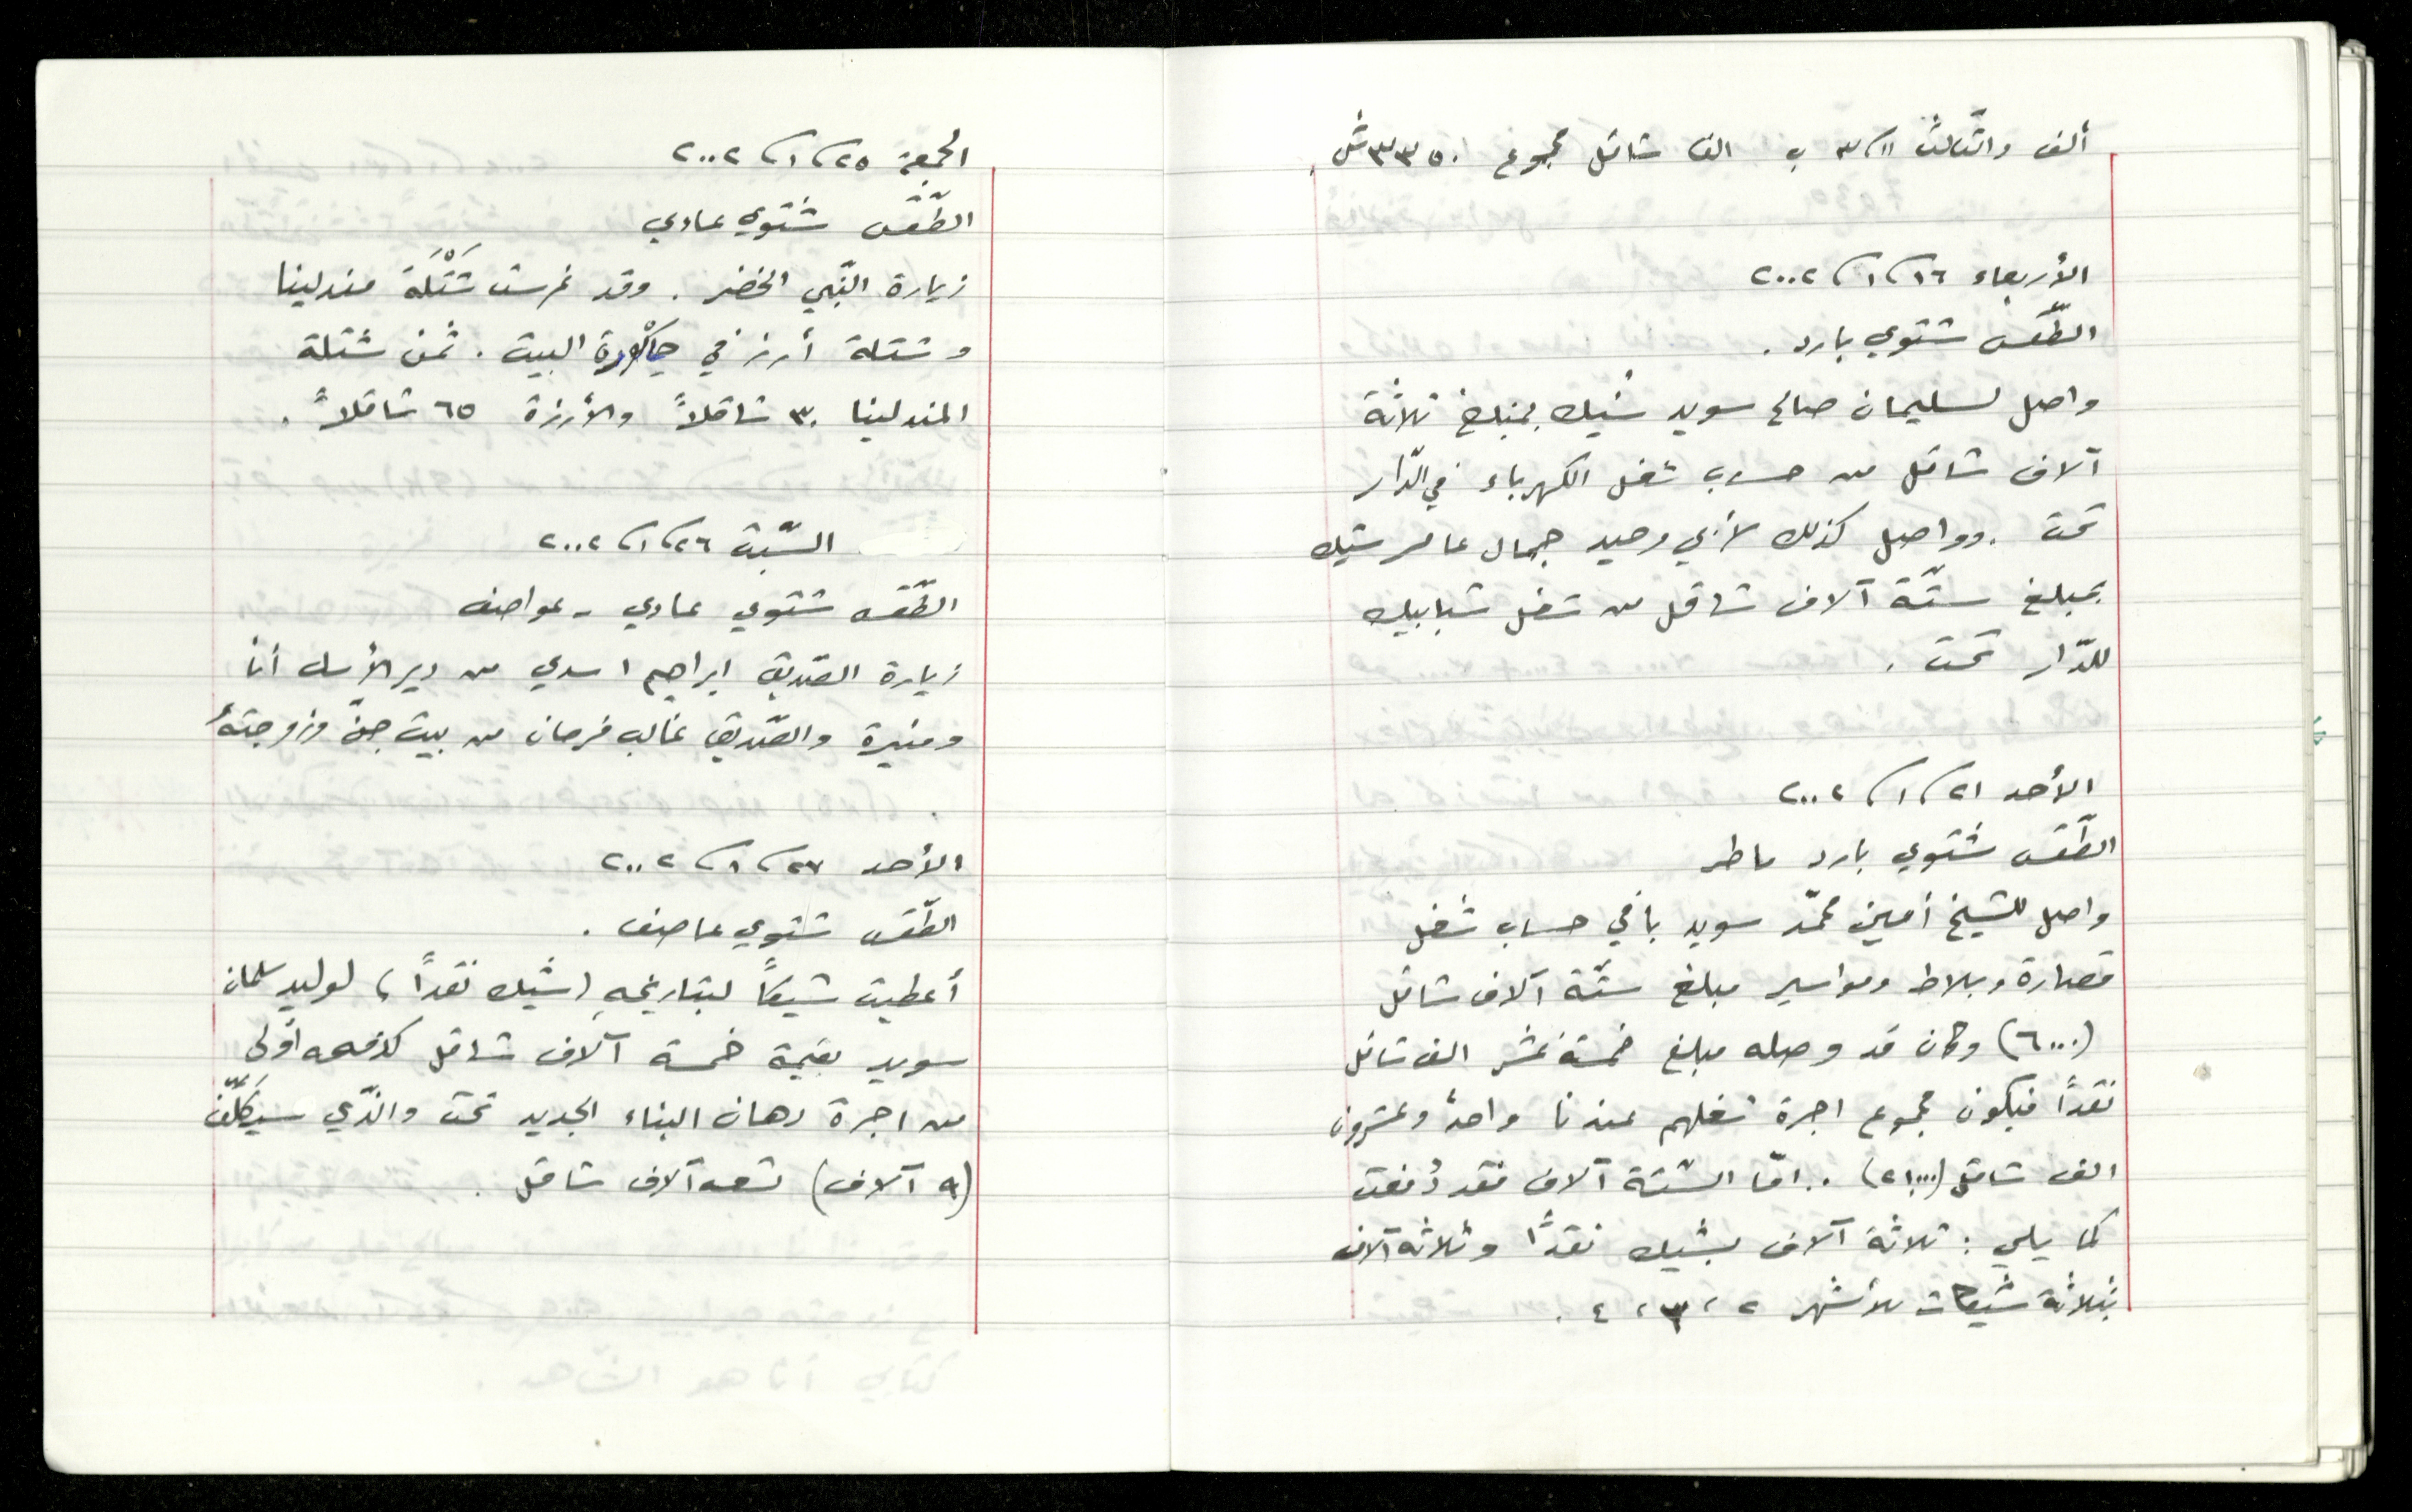 ألف والثّالث ١١/٣ ب الف شاقل مجموع ٣٣٥٠ ش
الأربعاء ١٦/١/٢٠٠٢
الطّقس شتوي بارد .
واصل لسليمان صالح سويد شيك بمبلغ ثلاثة
آلاف شاقل من حساب شغل الكهرباء في الدّار
تحت . وواصل كذلك لأبي وحيد جمال عامر شيك
بمبلغ ستّة آلاف شاقل من شغل شبابيك
للدّار تحت .
الأحد ٢١/١/٢٠٠٢
الطّقس شتوي بارد ماطر
واصل للشيخ أمين محمّد سويد باقي حساب شغل
قصارة وبلاط ومواسير مبلغ ستّة آلاف شاقل
(٦٠٠٠) وكان قد وصله مبلغ خمسة عشر الف شاقل
نقداً فيكون مجموع اجرة شغلهم عندنا واحدٌ وعشرون
الف شاقل (٢١٠٠٠) . امّا السّتة آلاف فقد دُفعت
كما يلي : ثلاثة آلاف بشيك نقداً وثلاثة آلاف
بثلاثة شيكات للأشهر ٢ ، ٣ ، ٤ .
الجمعة ٢٥/١/٢٠٠٢
الطّقس شتوي عادي
زيارة النّبي الخضر . وقد غرست شَتْلَة مندلينا
و شتلة أرز في حاكورة البيت . ثمن شتلة
المندلينا ٣٠ شاقلاً والأرزة ٦٥ شاقلاً .
السّبت ٢٦/١/٢٠٠٢
الطّقس شتوي عادي - عواصف
زيارة الصّديق ابراهيم اسدي من دير الأسد أنا
ومنيرة والصّديق غالب فرحان من بيت جنّ وزوجتهُ
.
الأحد ٢٧/١/٢٠٠٢
الطّقس شتوي عاصف .
أعطيت شيكاً بتاريخهِ (شيك نقداً) لوليد سلمان
سويد بقيمة خمسة آلاف شاقل كدفعه أولى
من اجرة دهان البناء الجديد تحت والذّي سيكَلّف
(٩ آلاف) تسعه آلاف شاقل .